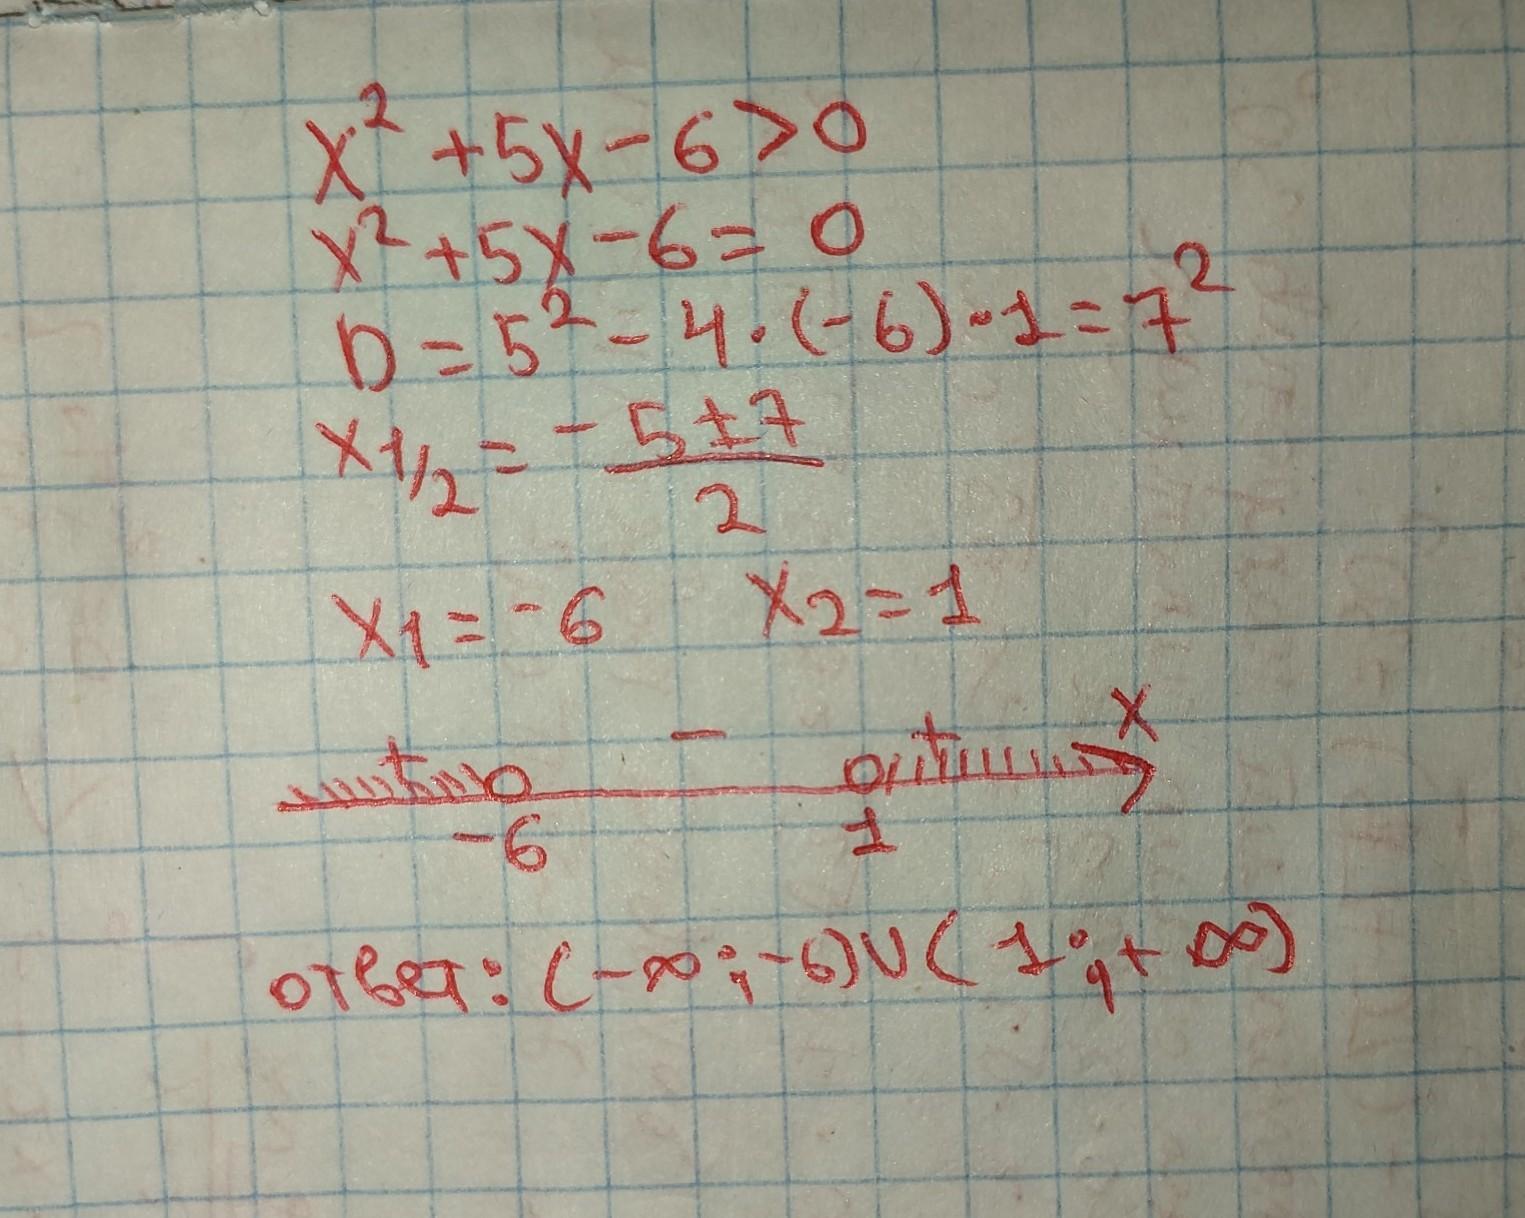 x² + 5x - 6 > 0
x² + 5x - 6 = 0
D = 5² - 4 · (-6) · 1 = 7²
x1/2 = - 5 ± 7
2
x1 = -6 x2 = 1
+ - + x
-6 1
ответ: (-∞; -6) ∪ (1; +∞)